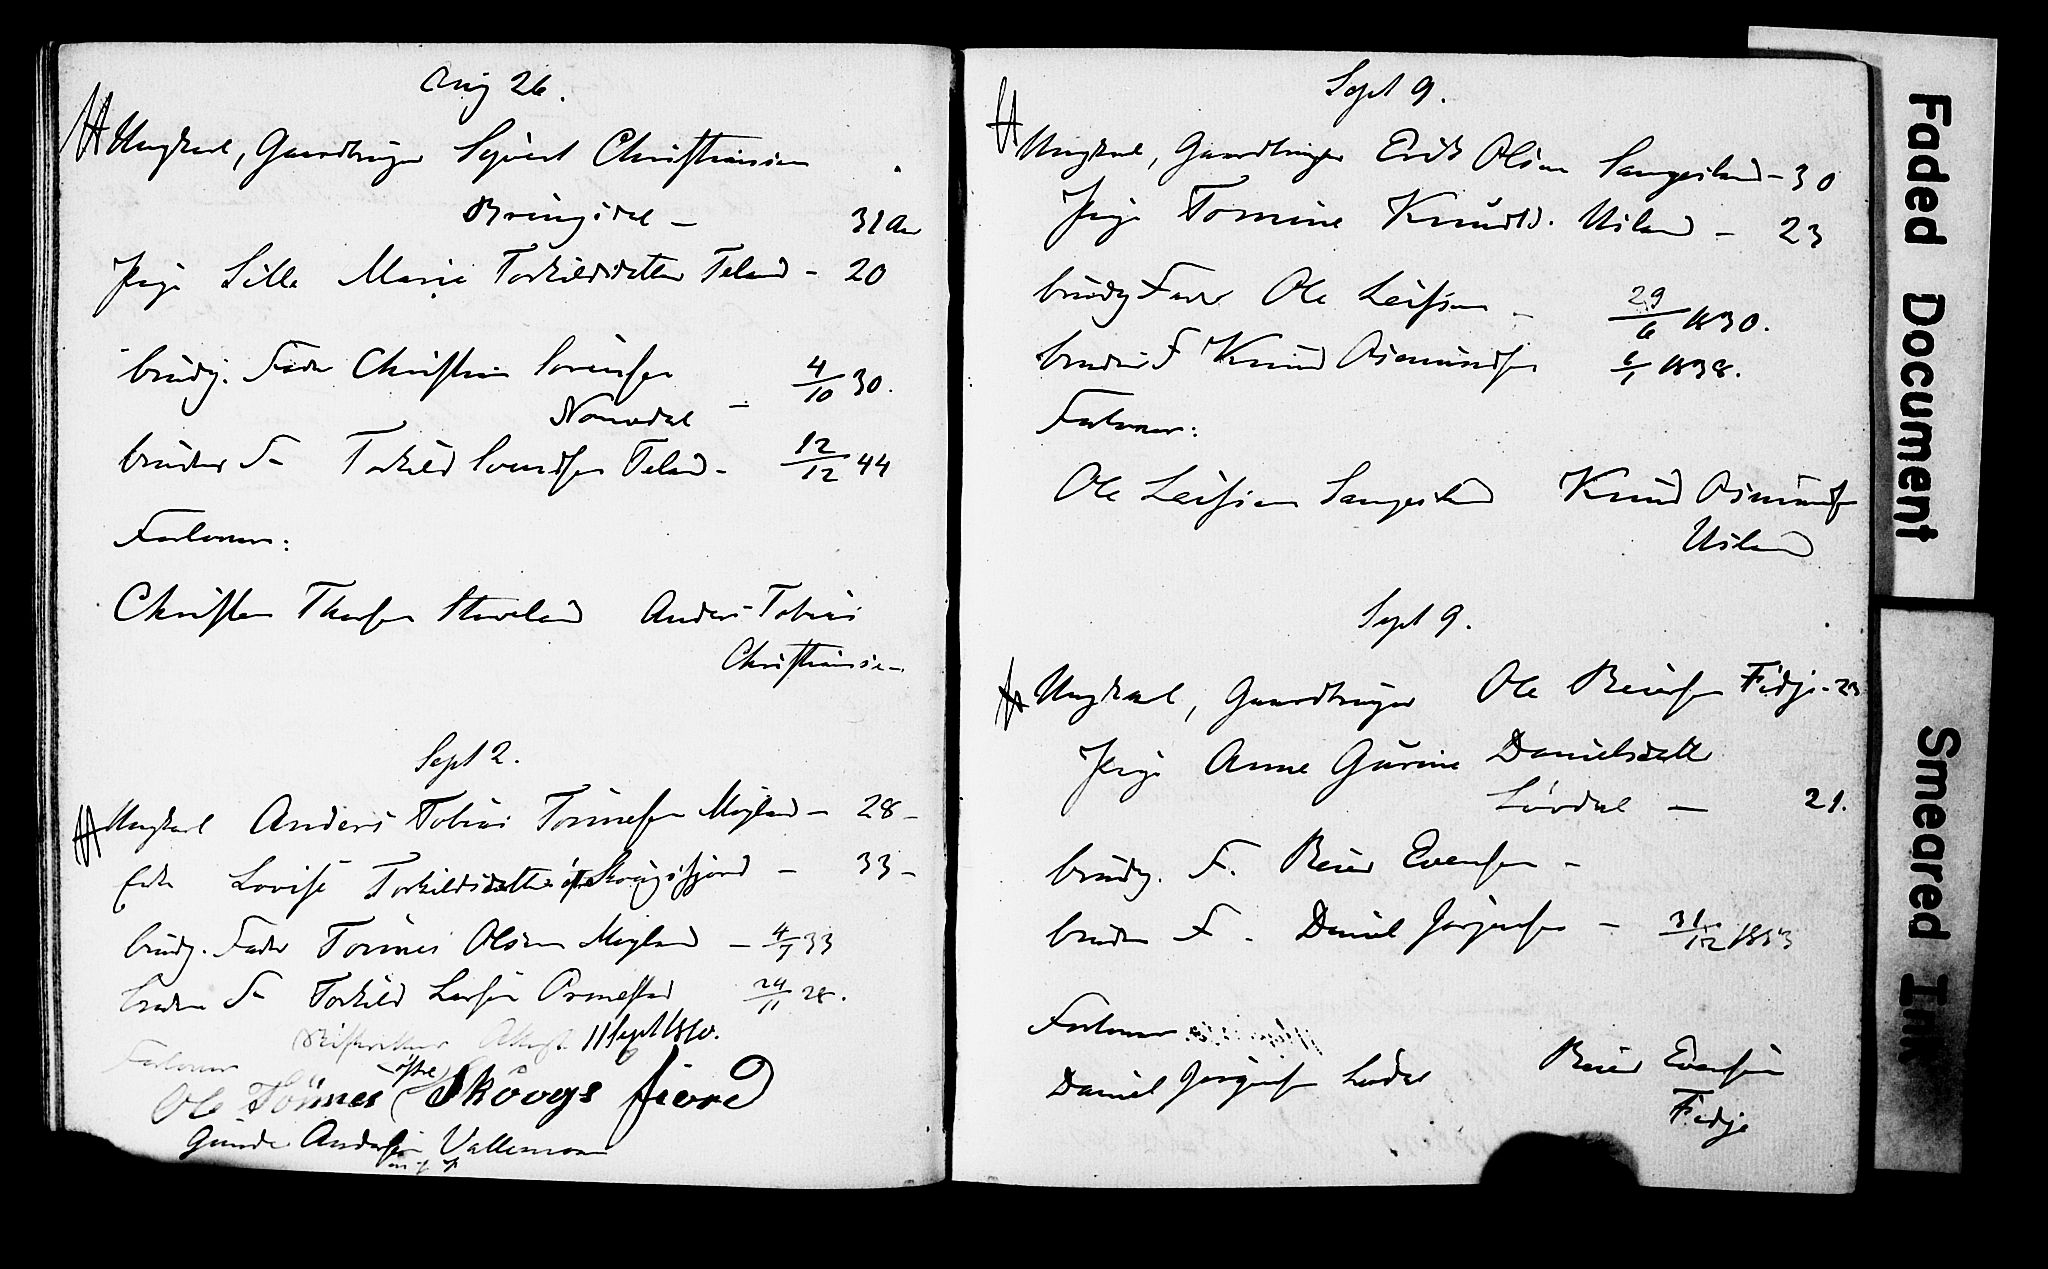 Aug 26.
Ungkarl, Gaardbruger Sigvart Christiansen
Bringsdal – 31 Aar
Pige Sille Marie Torkildsdatter Teland – 20
brudg. Fader Christen Sørensen
Nomedal – 4/10 30.
brudens Fa Torkild Svendsen Teland – 12/12 44
Forlovere:
Christen Thorsen Staveland Anders Tobias
Christiansen
Sept 2.
Ungkarl Anders Tobias Tønnesen Møgland – 28 –
Enke Lovise Torkildsdatter Skougsfjord – 33 –
brudg. Fader Tønnes Olsen Møgland – 4/5 33
brudens Fa Torkild Larsen Ormestad 24/11 28.
Attest 11 Sept 1860.
Forlovere
Ole Tönnes (østre) Skoogsfjord
Gunder Andersen Vallemoen
Sept 9.
Ungkarl, Gaardbruger Erik Olsen Sangesland – 30
Pige Tomine Knudsd. Usland – 23
brudg Fader Ole Leifsen – 29/6 1830.
brudens F Knud Osmundsen 6/1 1838.
Forlovere:
Ole Leifsen Sangesland Knud Osmundsen
Usland
Sept 9.
Ungkarl, Gaardbruger Ole Reiersen Fidje – 23
Pige Anne Gurine Danielsdatter
Lövdal – 21.
brudg. F. Reier Evensen –
brudens F. Daniel Jørgensen – 31/12 1853
Forlovere
Daniel Jørgensen Lövdal Reier Evensen
Fidje
Faded Document
Smeared Ink